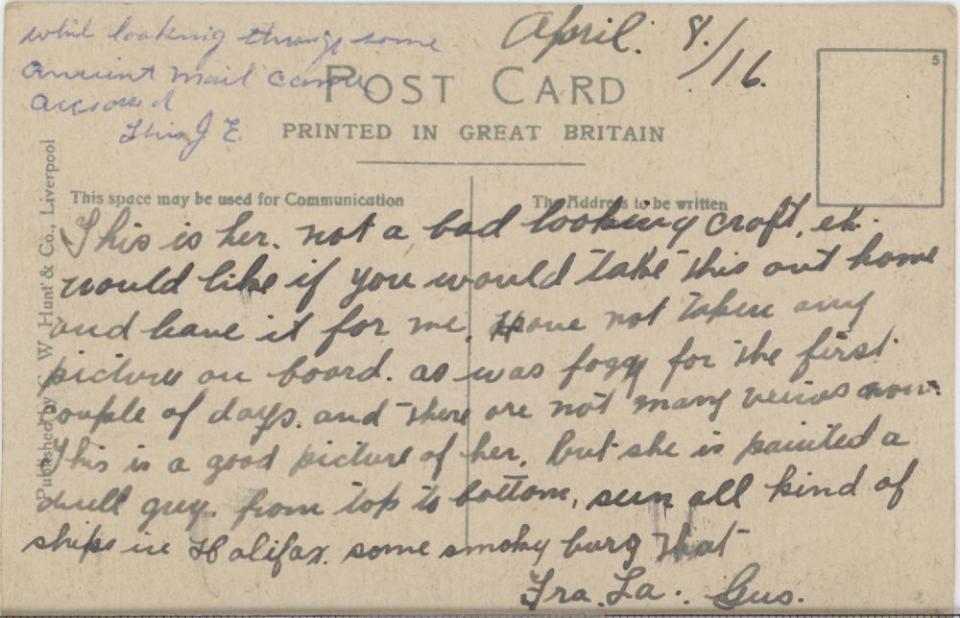 whil looking through some
April. 8./16.
ancient mail came
accross
this J E.
POST CARD
PRINTED IN GREAT BRITAIN
5
This space may be used for Communication
The Address to be written
Published by C. W. Hunt & Co., Liverpool
This is her. not a bad looking craft, eh.
would like if you would take this out home
and leave it for me. Have not taken any
picture on board. as was foggy for the first
couple of days. and there are not many views now.
This is a good picture of her, but she is painted a
dull grey. from top to bottom, seen all kind of
ships in Halifax. some smoky burg that
Tra. La. Gus.